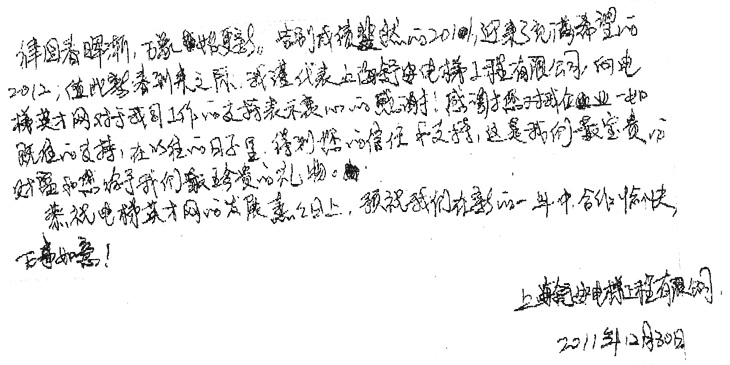 律回春晖渐,万象始更新。告别成绩斐然的2011,迎来了充满希望的
2012,值此新春到来之际,我谨代表上海舒安电梯工程有限公司,向电
梯英才网对于我司工作的支持表示衷心的感谢!感谢您对我企业一如
既往的支持,在以往的日子里,得到您的信任和支持,这是我们最宝贵的
财富和您给予我们最珍贵的礼物。
恭祝电梯英才网的发展蒸蒸日上,预祝我们在新的一年中合作愉快,
万事如意!
上海舒安电梯工程有限公司.
2011年12月30日